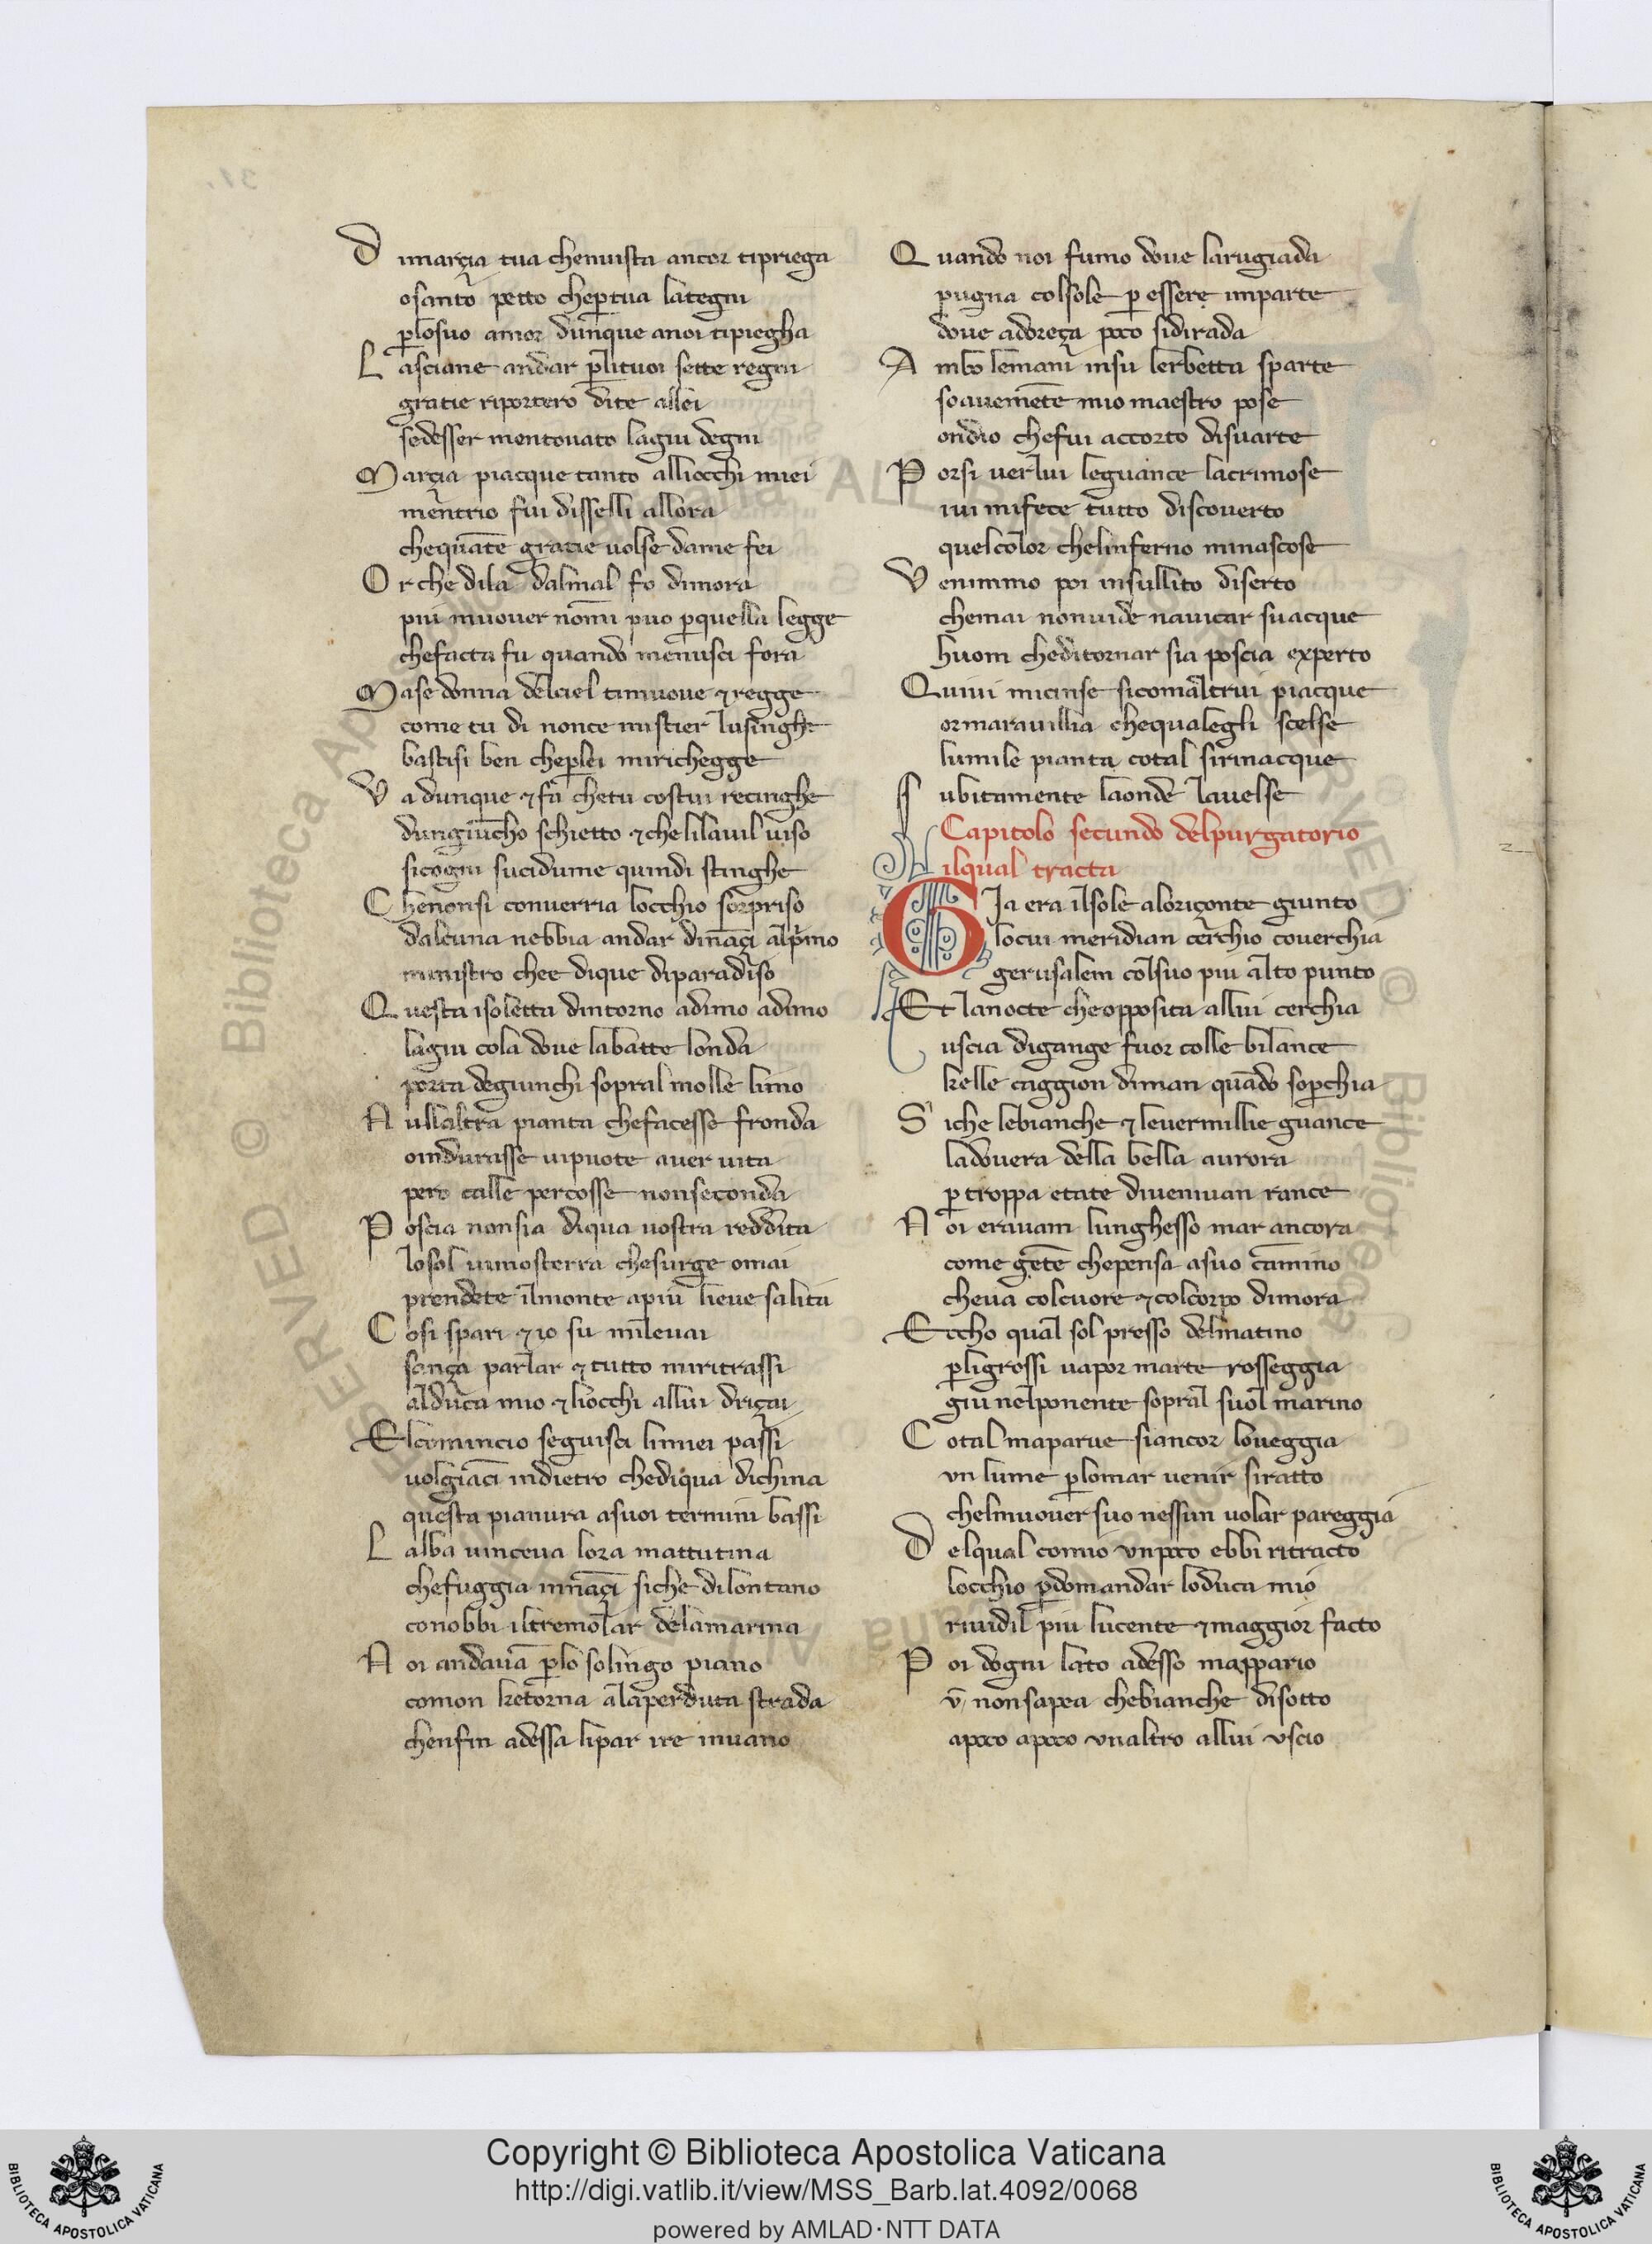 D imarçia tua chenuista ancor tipriega
osanto petto cheꝑtua lategni
ꝑlosuo amor dunque anoi tipiegha
L asciane andar ꝑlituoi sette regni
gratie riportero dite allei
sedesser mentouato lagiu degni
M arçia piacque tanto alliocchi miei
mentrio fui disselli allora
chequāte gratie uolse dame fei
O r che dila dalmal fo dimora
piu muouer nōmi puo ꝑquella legge
chefacta fu quando menusci fora
M ase donna delciel timuoue ⁊ regge
come tu di nonce mistier lusinghe
bastisi ben cheꝑlei mirichegge
V a dunque ⁊ fa chetu costui recinghe
dungiuncho schietto ⁊ chelilauil uiso
sicogni sucidume quindi stinghe
C henonsi conuerria locchio sorpriso
dalcuna nebbia andar dināçi alp̄mo
ministro chee dique diparadiso
Q uesta isoletta dintorno adimo adimo
lagiu cola doue labatte londa
porta degiunchi sopral molle limo
N ullaltra pianta chefacesse fronda
oindurasse uipuote auer uita
pero calle percosse nonseconda
P oscia nonsia diqua uostra reddita
losol uimosterra chesurge omai
prendete ilmonte apiu lieue salita
C osi spari ⁊ io su mileuai
sença parlar ⁊ tutto miritrassi
alduca mio ⁊ liocchi allui driçai
E lcomincio seguisci limiei passi
uolgiāci indietro chediqua dichina
questa pianura asuoi termini bassi
L alba uinceua lora mattutina
chefuggia innāçi siche dilontano
conobbi iltremolar delamarina
N oi andauā ꝑlo solingo piano
comon ketorna alaperduta strada
chenfin adessa lipar ire inuano
Q uando noi fumo doue larugiada
pugna colsole ꝑ essere imparte
doue adoreça poco sidirada
A mbo lemani insu lerbetta sparte
soauemēte mio maestro pose
ondio chefui accorto disuarte
P orsi uerlui leguance lacrimose
iui mifece tutto discouerto
quelcolor chelinferno minascose
V enimmo poi insullito diserto
chemai nonuide nauicar suacque
huom cheditornar sia poscia experto
Q uiui micinse sicomaltrui piacque
ormarauillia chequalegli scelse
lumile pianta cotal sirinacque
S ubitamente laonde lauelse
Capitolo secundo delpurgatorio
ilqual tracta
G Ja era ilsole aloriçonte giunto
locui meridian cerchio couerchia
gerusalem colsuo piu alto punto
Et lanocte cheopposita allui cerchia
uscia digange fuor colle bilance
kelle caggion diman quādo soꝑchia
S iche lebianche ⁊ leuermillie guance
ladouera della bella aurora
ꝑ troppa etate diueniuan rance
N oi erauam lunghesso mar ancora
come gēte chepensa asuo camino
cheua colcuore ⁊ colcorpo dimora
E ccho qual sol presso delmatino
ꝑligrossi uapor marte rosseggia
giu nelponente sopral suol marino
C otal maparue siancor loueggia
vn lume ꝑlomar uenir siratto
chelmuouer suo nessun uolar pareggia
D elqual comio vnpoco ebbi ritracto
locchio ꝑdomandar loduca mio
riuidil piu lucente ⁊ maggior facto
P oi dogni lato adesso mappario
v̄ nonsapea chebianche disotto
apoco apoco vnaltro allui vscio
Copyright © Biblioteca Apostolica Vaticana
http://digi.vatlib.it/view/MSS_Barb.lat.4092/0068
powered by AMLAD·NTT DATA
BIBLIOTECA APOSTOLICA VATICANA
BIBLIOTECA APOSTOLICA VATICANA